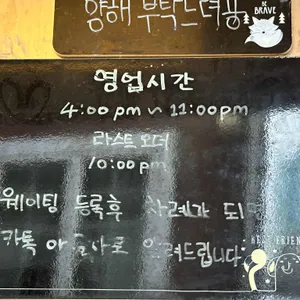 양해 부탁드려용
BE
BRAVE
영업시간
4:00 pm ~ 11:00 pm
라스트오더
10:00 pm
웨이팅 등록후 차례가 되면
카톡 알려드립니다
BEST FRIEN